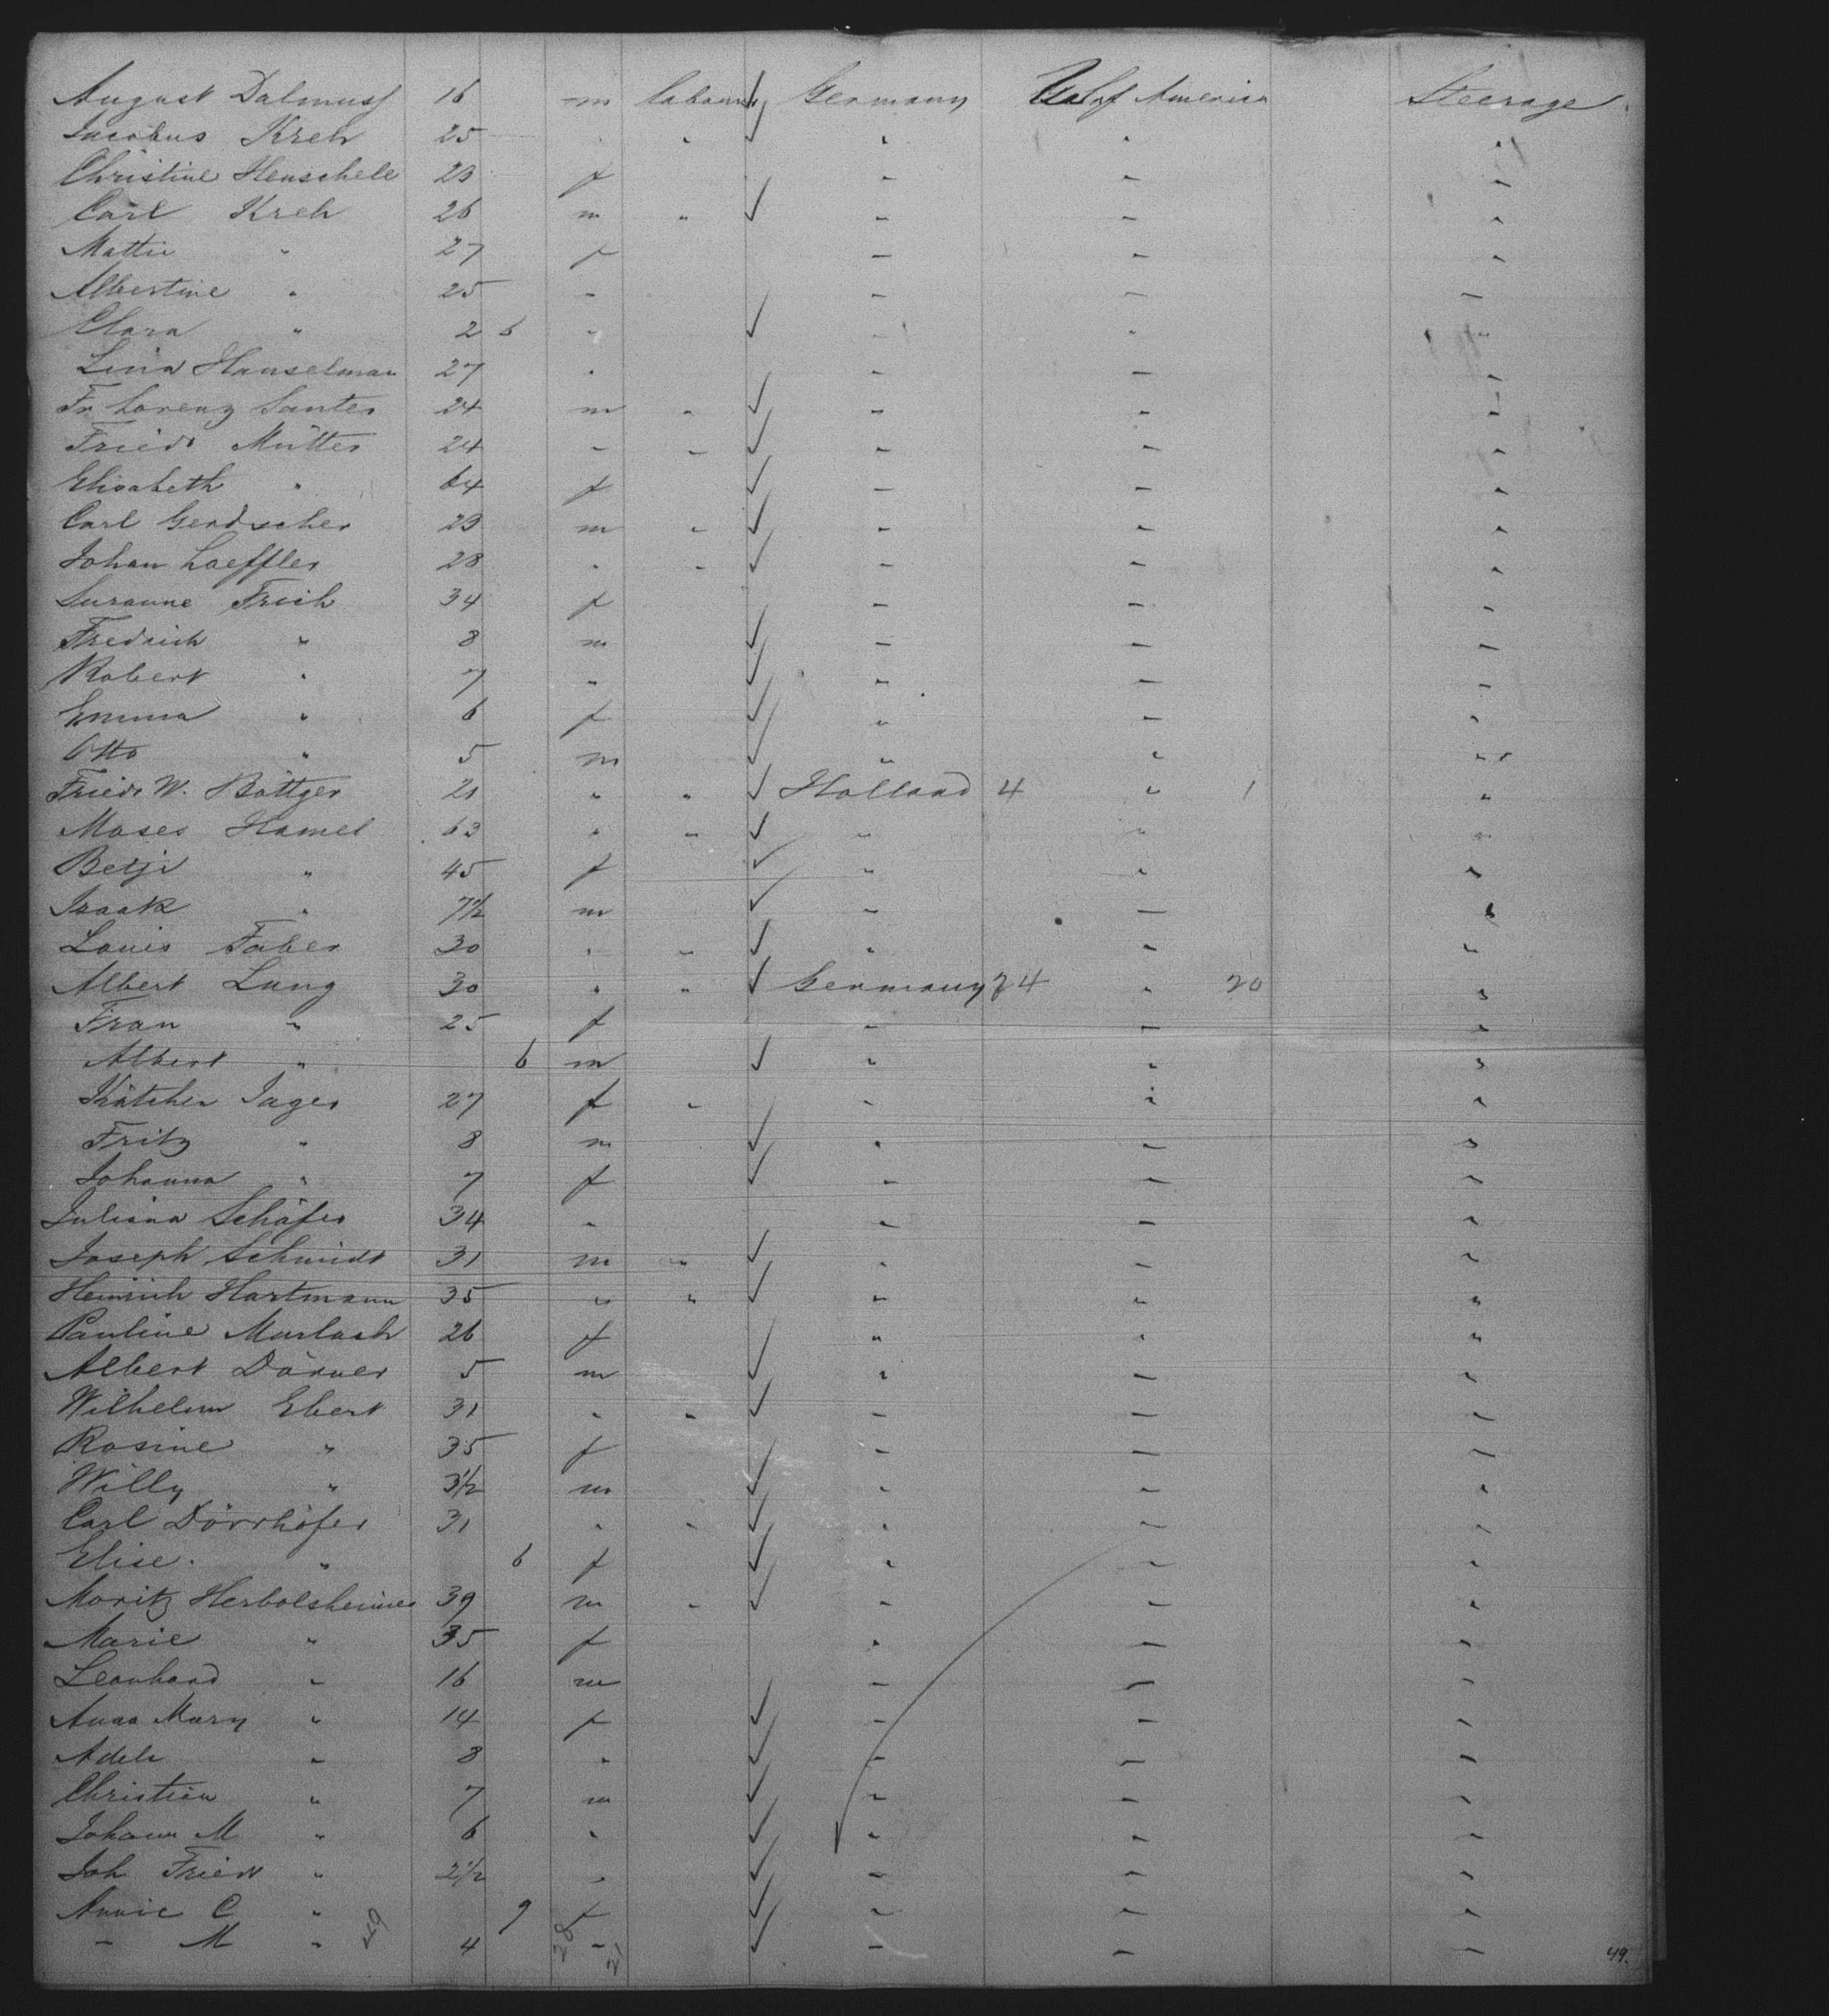 August Dalmuss 16 m Labourer Germany U S of America Steerage
Jacobus Kreh 25 " " " " "
Christine Henschele 23 f " " "
Carl Kreh 26 m " " " "
Mattie " 27 f " " "
Albertine " 25 " " " "
Clara " 2 6 " " " "
Lina Hanselman 27 " " " "
Fr Lorenz Santer 24 m " " " "
Friedr Mütter 24 " " " " "
Elisabeth " 64 f " " "
Carl Gerdscher 23 m " " " "
Johan Loeffler 28 " " " " "
Susanne Frich 34 f " " "
Fredrich " 8 m " " "
Robert " 7 " " " "
Emma " 6 f " " "
Otto " 5 m " " "
Friedr W. Böttger 21 " " Holland 4 " 1 "
Moses Hamel 63 " " " " "
Betje " 45 f " " "
Isaak " 7½ m " " "
Louis Faber 30 " " " " "
Albert Lang 30 " " Germany 24 " 20 "
Frau " 25 f " " "
Albert " 6 m " " "
Kätchen Jager 27 f " " " "
Fritz " 8 m " " "
Johanna " 7 f " " "
Juliana Schäfer 34 " " " "
Joseph Schmidt 31 m " " " "
Heinrich Hartmann 35 " " " " "
Pauline Murbach 26 f " " "
Albert Dörner 5 m " " "
Wilhelm Ebert 31 " " " " "
Rosine " 35 f " " "
Willy " 3½ m " " "
Carl Dörrhöfer 31 " " " " "
Elise " 6 f " " "
Moritz Herbolsheimer 39 m " " " "
Marie " 35 f " " "
Leonhard " 16 m " " "
Anna Mary " 14 f " " "
Adele " 8 " " " "
Christian " 7 m " " "
Johann M " 6 " " " "
Joh Friedr " 2½ " " " "
Annie C " 9 f " " "
" M " 4 " " " "
49 28 21 49.